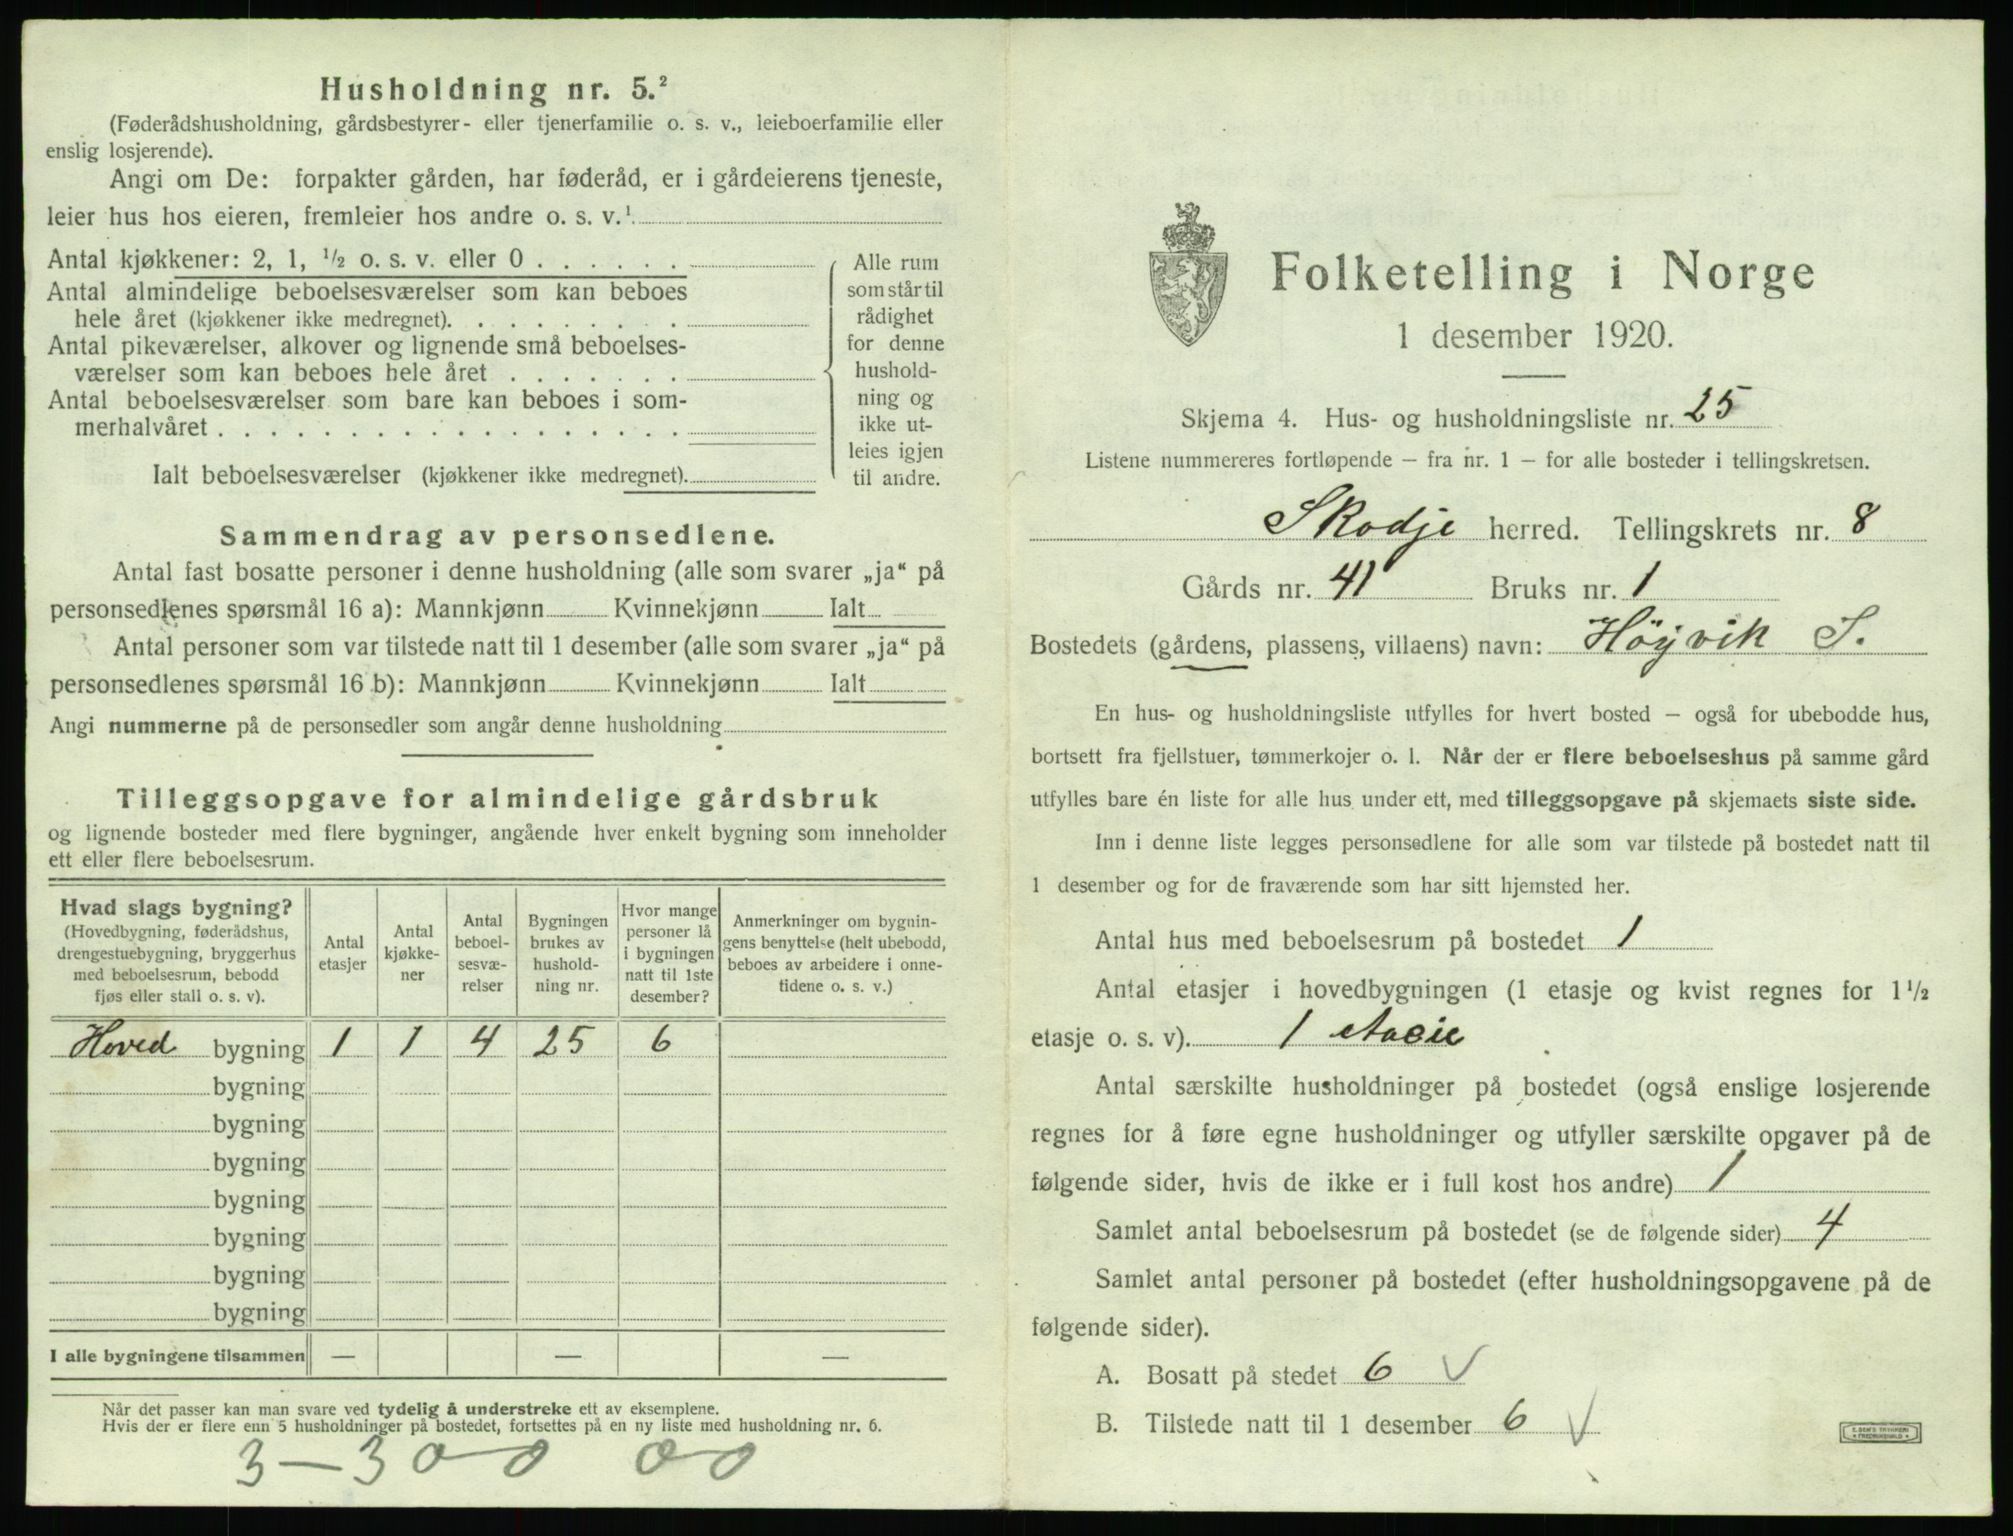 Husholdning nr. 5.²
(Føderådshusholdning, gårdsbestyrer- eller tjenerfamilie o. s. v., leieboerfamilie eller
enslig losjerende).
Angi om De: forpakter gården, har føderåd, er i gårdeierens tjeneste,
leier hus hos eieren, fremleier hos andre o. s. v.¹
Antal kjøkkener: 2, 1, ½ o. s. v. eller 0 . . . . . .
Antal almindelige beboelsesværelser som kan beboes
hele året (kjøkkener ikke medregnet). . . . . . . . .
Antal pikeværelser, alkover og lignende små beboelses-
værelser som kan beboes hele året . . . . . . .
Antal beboelsesværelser som bare kan beboes i som-
merhalvåret . . . . . . . . . . . . . . . . . .
Ialt beboelsesværelser (kjøkkener ikke medregnet).
Alle rum
som står til
rådighet
for denne
hushold-
ning og
ikke ut-
leies igjen
til andre.
Sammendrag av personsedlene.
Antal fast bosatte personer i denne husholdning (alle som svarer „ja“ på
personsedlenes spørsmål 16 a): Mannkjønn Kvinnekjønn Ialt
Antal personer som var tilstede natt til 1 desember (alle som svarer „ja“ på
personsedlenes spørsmål 16 b): Mannkjønn Kvinnekjønn Ialt
Angi nummerne på de personsedler som angår denne husholdning
Tilleggsopgave for almindelige gårdsbruk
og lignende bosteder med flere bygninger, angående hver enkelt bygning som inneholder
ett eller flere beboelsesrum.
Hvad slags bygning?
(Hovedbygning, føderådshus,
drengestuebygning, bryggerhus
med beboelsesrum, bebodd
fjøs eller stall o. s. v).
Antal
etasjer
Antal
kjøkke-
ner
Antal
beboel-
sesvæ-
relser
Bygningen
brukes av
hushold-
ning nr.
Hvor mange
personer lå
i bygningen
natt til 1ste
desember?
Anmerkninger om bygnin-
gens benyttelse (helt ubebodd,
beboes av arbeidere i onne-
tidene o. s. v.)
Hoved bygning 1 1 4 25 6
bygning
bygning
bygning
bygning
bygning
bygning
bygning
I alle bygningene tilsammen — — —
Når det passer kan man svare ved tydelig å understreke ett av eksemplene.
Hvis der er flere enn 5 husholdninger på bostedet, fortsettes på en ny liste med husholdning nr. 6.
3 — 300 00
Folketelling i Norge
1 desember 1920.
Skjema 4. Hus- og husholdningsliste nr. 25
Listene nummereres fortløpende — fra nr. 1 — for alle bosteder i tellingskretsen.
Skodje herred. Tellingskrets nr. 8
Gårds nr. 41 Bruks nr. 1
Bostedets (gårdens, plassens, villaens) navn: Höyvik S.
En hus- og husholdningsliste utfylles for hvert bosted — også for ubebodde hus,
bortsett fra fjellstuer, tømmerkojer o. l. Når der er flere beboelseshus på samme gård
utfylles bare én liste for alle hus under ett, med tilleggsopgave på skjemaets siste side.
Inn i denne liste legges personsedlene for alle som var tilstede på bostedet natt til
1 desember og for de fraværende som har sitt hjemsted her.
Antal hus med beboelsesrum på bostedet 1
Antal etasjer i hovedbygningen (1 etasje og kvist regnes for 1½
etasje o. s. v). 1 etasie
Antal særskilte husholdninger på bostedet (også enslige losjerende
regnes for å føre egne husholdninger og utfyller særskilte opgaver på de
følgende sider, hvis de ikke er i full kost hos andre) 1
Samlet antal beboelsesrum på bostedet (se de følgende sider) 4
Samlet antal personer på bostedet (efter husholdningsopgavene på de
følgende sider).
A. Bosatt på stedet 6 √
B. Tilstede natt til 1 desember 6 √